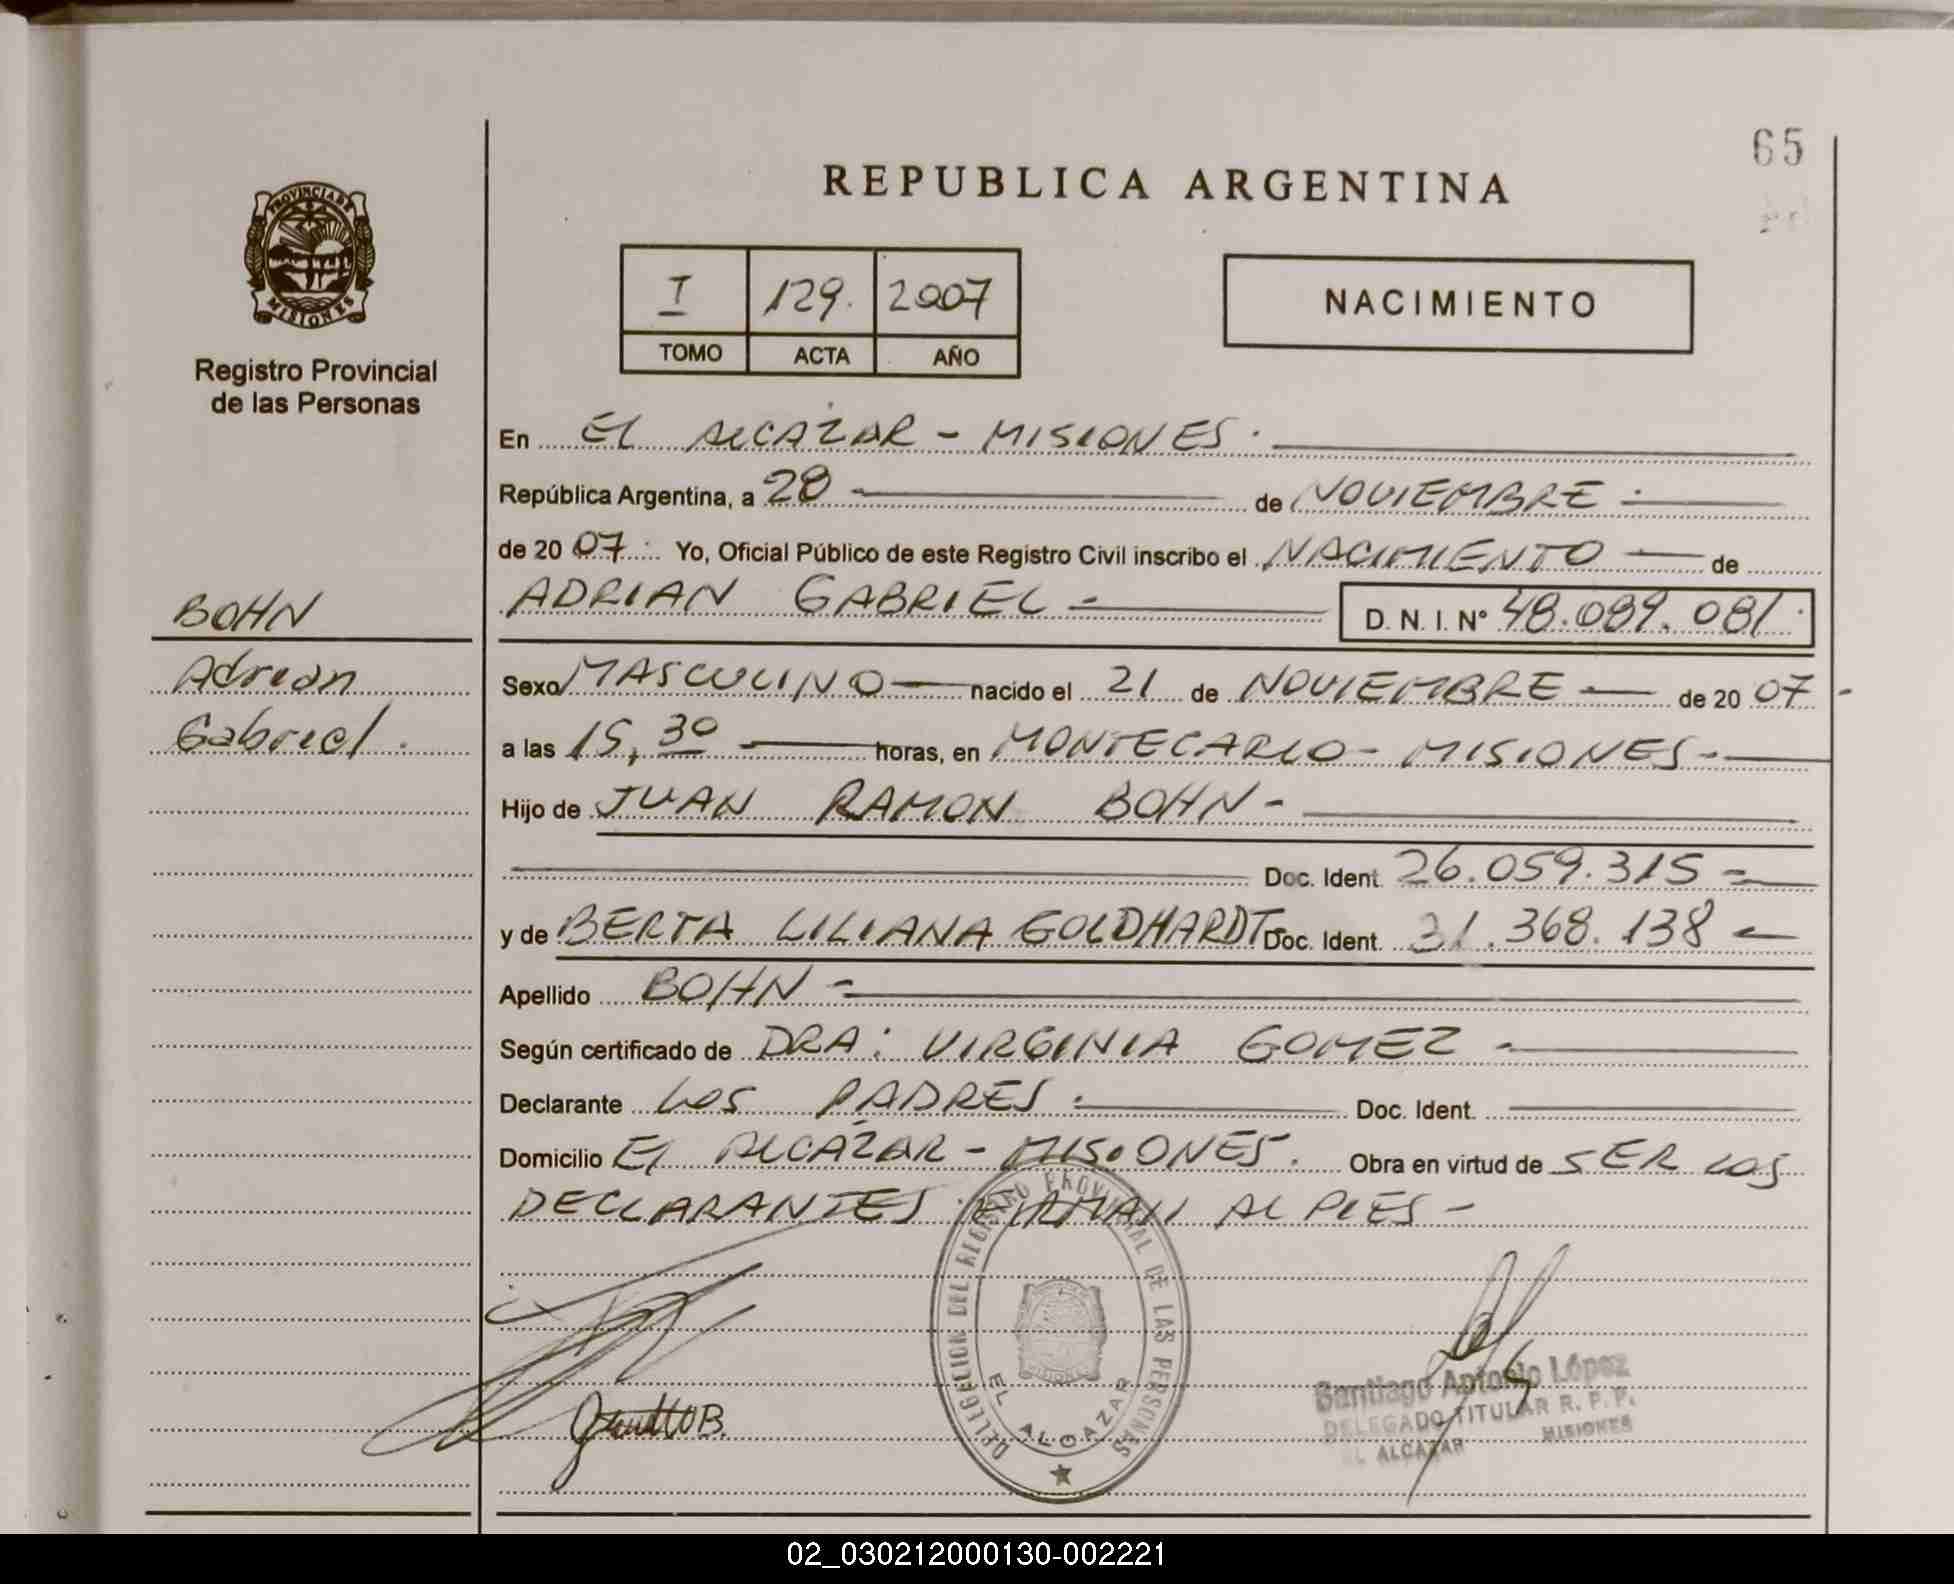 65
REPUBLICA ARGENTINA
PROVINCIA DE
MISIONES
Registro Provincial
de las Personas
I 129. 2007
TOMO ACTA AÑO
NACIMIENTO
En EL ALCAZAR - MISIONES.
República Argentina, a 28 de NOVIEMBRE
de 2007 Yo, Oficial Público de este Registro Civil inscribo el NACIMIENTO de
ADRIAN GABRIEL - D. N. I. N° 48.089.081
BOHN
Adrian
Gabriel.
Sexo MASCULINO nacido el 21 de NOVIEMBRE de 2007 -
a las 15,30 horas, en MONTECARLO - MISIONES -
Hijo de JUAN RAMON BOHN -
Doc. Ident. 26.059.315 -
y de BERTA LILIANA GOLDHARDT Doc. Ident. 31.368.138 -
Apellido BOHN -
Según certificado de DRA: VIRGINIA GOMEZ -
Declarante LOS PADRES. Doc. Ident.
Domicilio El ALCAZAR - MISIONES. Obra en virtud de SER LOS
DECLARANTES FIRMAN AL PIES -
DELEGACION DEL REGISTRO PROVINCIAL DE LAS PERSONAS
EL ALCAZAR
Santiago Antonio López
DELEGADO TITULAR R. P. P.
EL ALCAZAR MISIONES
02_030212000130-002221